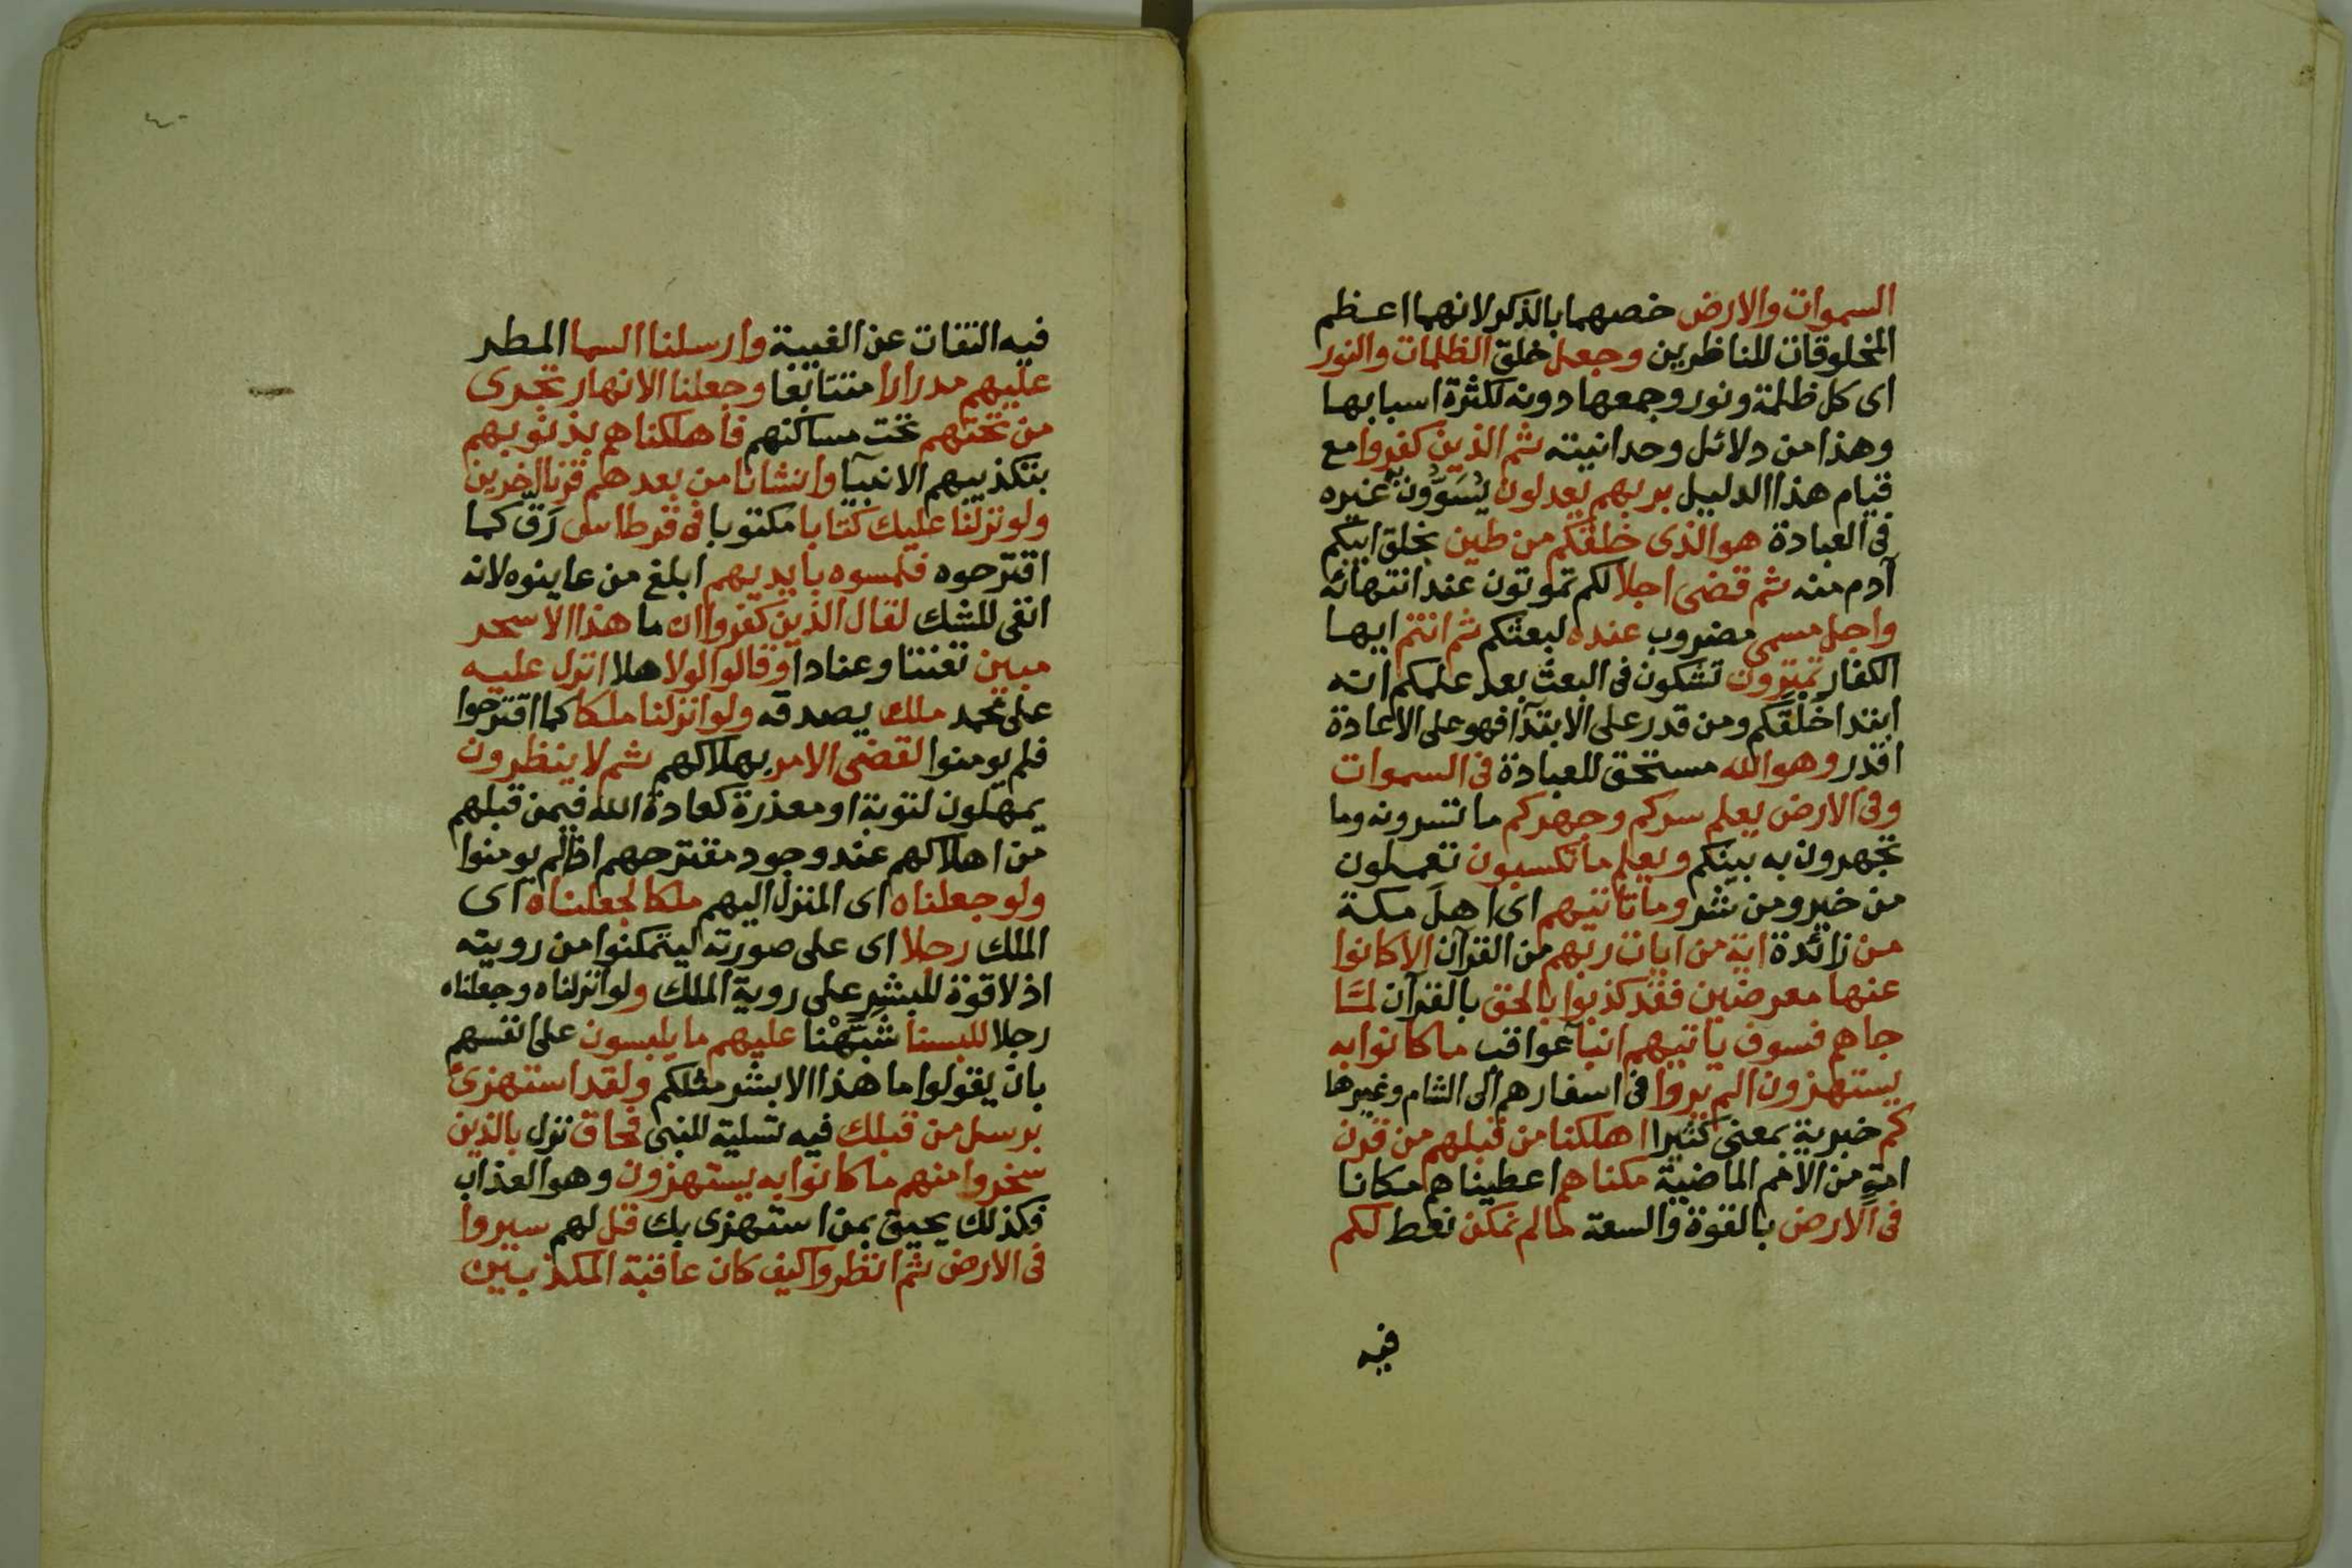 السموات والارض خصهما بالذكر لانهما اعظم
المخلوقات للناظرين وجعل خلق الظلمات والنور
اى كل ظلمة ونور وجمعها دونه لكثرة اسبابها
وهذا من دلائل وحدانيته ثم الذين كفروا مع
قيام هذا الدليل بربهم يعدلون يُسَوُّون غيره
فى العبادة هو الذى خلقكم من طين بخلق ابيكم
آدم منه ثم قضى اجلا لكم تموتون عند انتهائه
واجل مسمى مضروب عنده لبعثكم ثم انتم ايها
الكفار تمترون تشكون فى البعث بعد علمكم انه
ابتدا خلقكم ومن قدر على الابتدآ فهو على الاعادة
اقدر وهو الله مستحق للعبادة فى السموات
وفى الارض يعلم سركم وجهركم ما تسرونه وما
تجهرون به بينكم ويعلم ما تكسبون تعملون
من خير ومن شر وما تاتيهم اى اهل مكة
من زائدة اية من ايات ربهم من القرآن الا كانوا
عنها معرضين فقد كذبوا بالحق بالقرآن لمّا
جاهم فسوف ياتيهم انبآ عواقب ما كانوا به
يستهزون الم يروا فى اسفارهم الى الشام وغيرها
كم خبرية بمعنى كثيرا اهلكنا من قبلهم من قرن
امة من الامم الماضية مكناهم اعطيناهم مكانا
فى الارض بالقوة والسعة ما لم نمكن نعط لكم
فيه
٤٠
فيه التفات عن الغيبة وارسلنا السما المطر
عليهم مدرارا متتابعا وجعلنا الانهار تجرى
من تحتهم تحت مساكنهم فاهلكناهم بذنوبهم
بتكذيبهم الانبيآ وانشانا من بعدهم قرنا اخرين
ولو نزلنا عليك كتابا مكتوبا فى قرطاس رَق كما
اقترحوه فلمسوه بايديهم ابلغ من عاينوه لانه
انفى للشك لقال الذين كفروا ان ما هذا الا سحر
مبين تعنتا وعنادا وقالوا لولا هلا انزل عليه
على محمد ملك يصدقه ولو انزلنا ملكا كما اقترحوا
فلم يومنوا لقضى الامر بهلاكهم ثم لا ينظرون
يمهلون لتوبة او معذرة كعادة الله فيمن قبلهم
من اهلاكهم عند وجود مقترحهم اذا لم يومنوا
ولو جعلناه اى المنزل اليهم ملكا لجعلناه اى
الملك رجلا اى على صورته ليتمكنوا من رويته
اذ لا قوة للبشر على روية الملك ولو انزلناه وجعلناه
رجلا للبسنا شبَّهْنا عليهم ما يلبسون على انفسهم
بان يقولوا ما هذا الا بشر مثلكم ولقد استهزئ
برسل من قبلك فيه تسلية للنبى فحاق نزل بالذين
سخروا منهم ما كانوا به يستهزون وهو العذاب
فكذلك يحيق بمن استهزى بك قل لهم سيروا
فى الارض ثم انظروا كيف كان عاقبة المكذبين